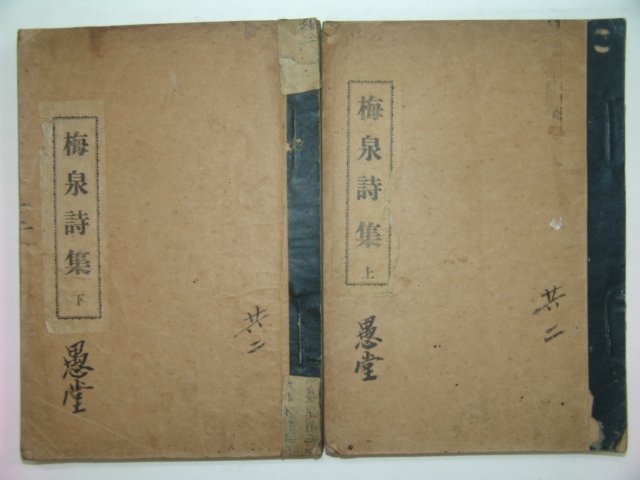 梅泉詩集 上
共二
愚堂
梅泉詩集 下
共二
愚堂